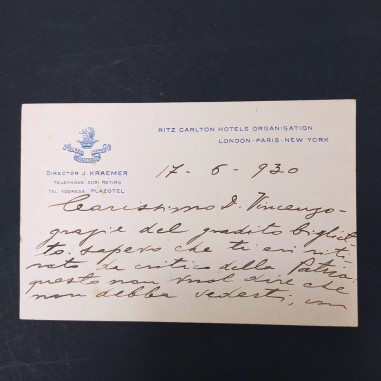 RITZ CARLTON HOTELS ORGANISATION
LONDON-PARIS-NEW YORK
DIRECTOR J. KRAEMER
TELEPHONE 5031 RETIRO
TEL ADDRESS "PLAZOTEL"
17 - 6 - 930
Carissimo D. Vincenzo-
grazie del gradito bigliet
to. sapevo che ti eri riti
rato da critico della Patria
questo non vuol dire che
non debba vederti,